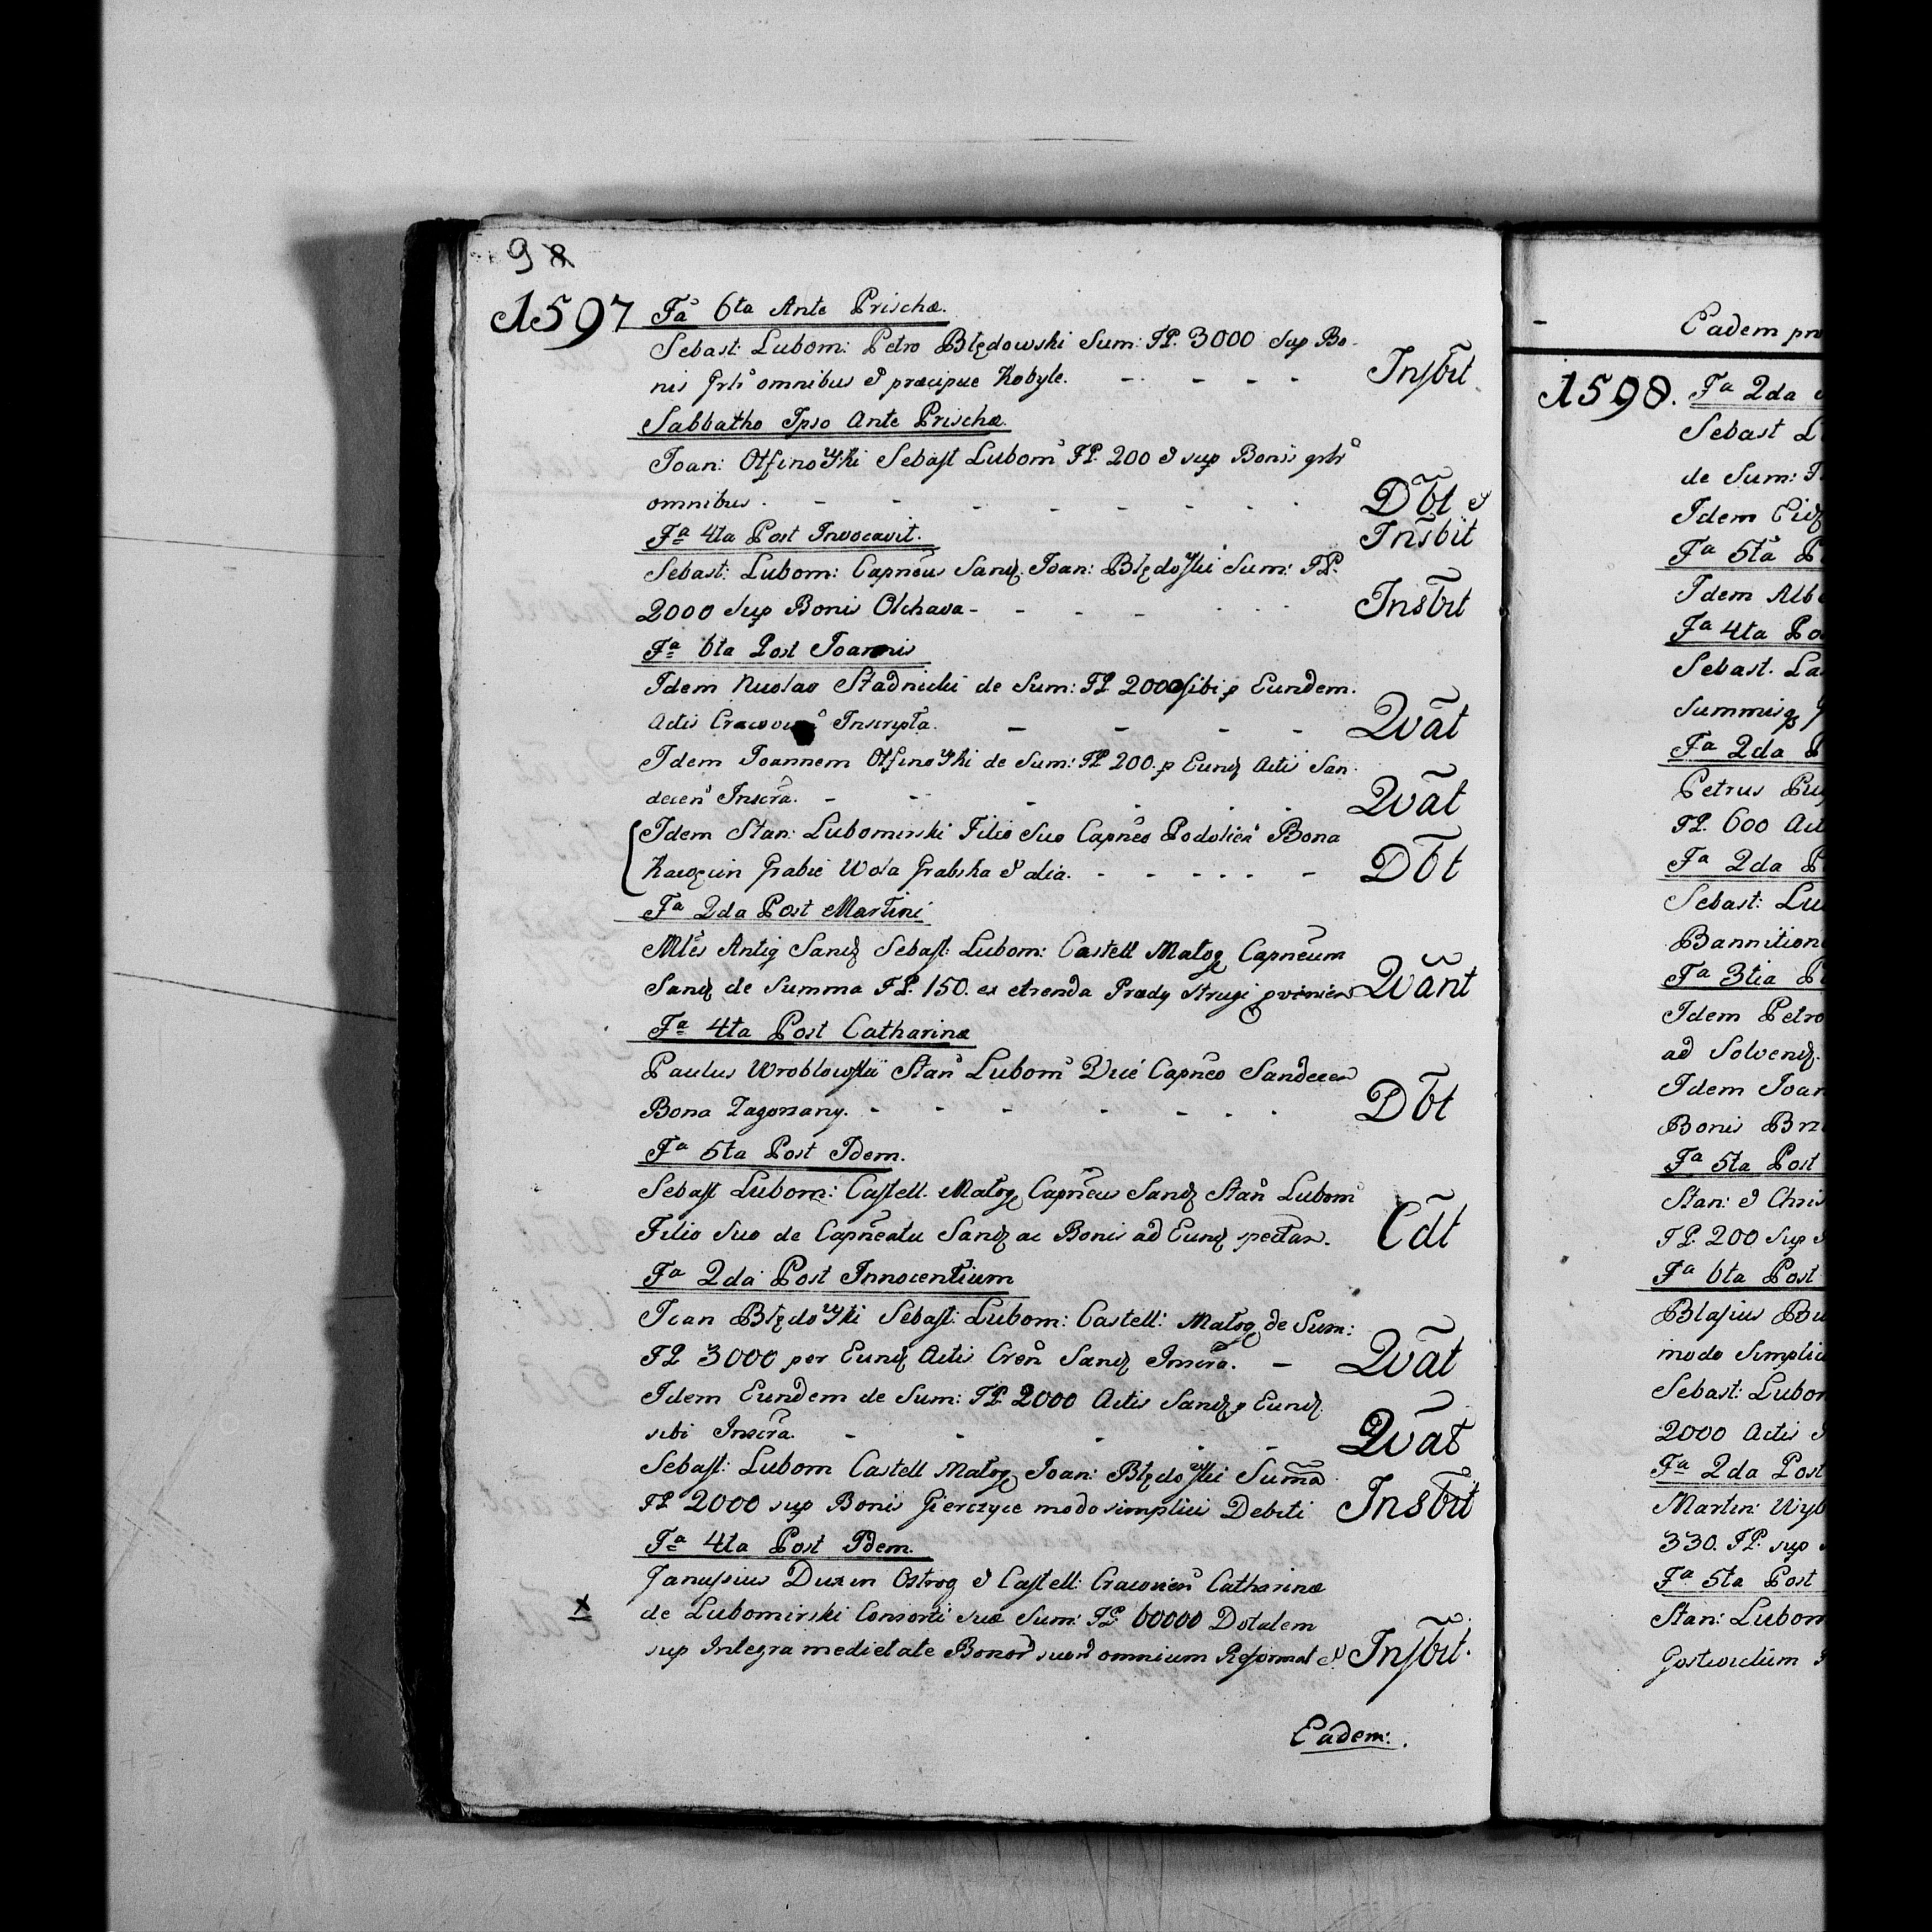 98
1597 Fa 6ta Ante Prischæ.
Sebast: Lubom: Petro Błędowski Sum: FP. 3000 sup Bo-
nis grls omnibus & præcipue Kobyle. - - - - Insbt
Sabbatho Ipso Ante Prischæ.
Joan: Otfinowski Sebast Lubom FP. 200 & sup Bonis grls
omnibus. - - - - - - Dbt &
Fa 4ta Post Invocavit. Insbit
Sebast: Lubom: Capneus Sand. Joan: Błędowski Sum: FP.
2000 sup Bonis Olchava - - - - - Insbit
Fa 6ta Post Joannis
Idem Nicolao Stadnicki de Sum: FP 2000 sibi p Eundem.
Actis Inscripta. - - - - Qvat
Idem Joannem Otfinowski de Sum: FP 200. p Eund Actis San-
decen Inscra. - - - - - - Qvat
Idem Stan: Lubomirski Filio Suo Capneo Bona
Grabie Wola Grabska & alia. - - - - - Dbt
Fa 2da Post Martini
Sand Sebast: Lubom: Castell Małog Capneum
Sand de Summa FP. 150. ex Arenda Strugi Qvant
Fa 4ta Post Catharinæ
Paulus Wroblowski Stan Lubom Capneo Sandecen
Bona Zagorzany. - - - - - - Dbt
Fa 5ta Post Idem.
Sebast Lubom: Castell. Małog Capneus Sand Stan Lubom
Filio Suo de Capneatu Sand ac Bonis ad Eund spectan. Cdt
Fa 2da Post Innocentium
Joan Błędowski Sebast: Lubom: Castell: Małog de Sum:
FP 3000 per Eund Actis Sand Inscra. - Qvat
Idem Eundem de Sum: FP 2000 Actis Sand p Eund.
sibi Inscra. - - - - - Qvat
Sebast: Lubom Castell Małog Joan: Błędowski Suma
FP 2000 sup Bonis Gierczyce modo simplici Debiti Insbit
Fa 4ta Post Idem.
Janussius Dux in Ostrog & Castell: Cracovien Catharinæ
x de Lubomirski Consorti suæ Sum: FP. 60000 Dotalem
sup Integra medietate Bonor suor omnium Reformat & Insbit.
Eadem:.
Eadem
1598. Fa 2da
Sebast
de Sum:
Idem
Fa 5ta
Idem
Fa 4ta
Sebast.
Summis
Fa 2da
Petrus
FP. 600
Fa 2da
Sebast:
Fa 3tia
Idem Petro
ad Solvend.
Idem
Bonis
Fa 5ta Post
Stan: &
FP. 200 sup
Fa 6ta Post
Blasius
modo
Sebast:
2000 Actis
Fa 2da Post
Martin:
330. FP. sup
Fa 5ta Post
Stan: